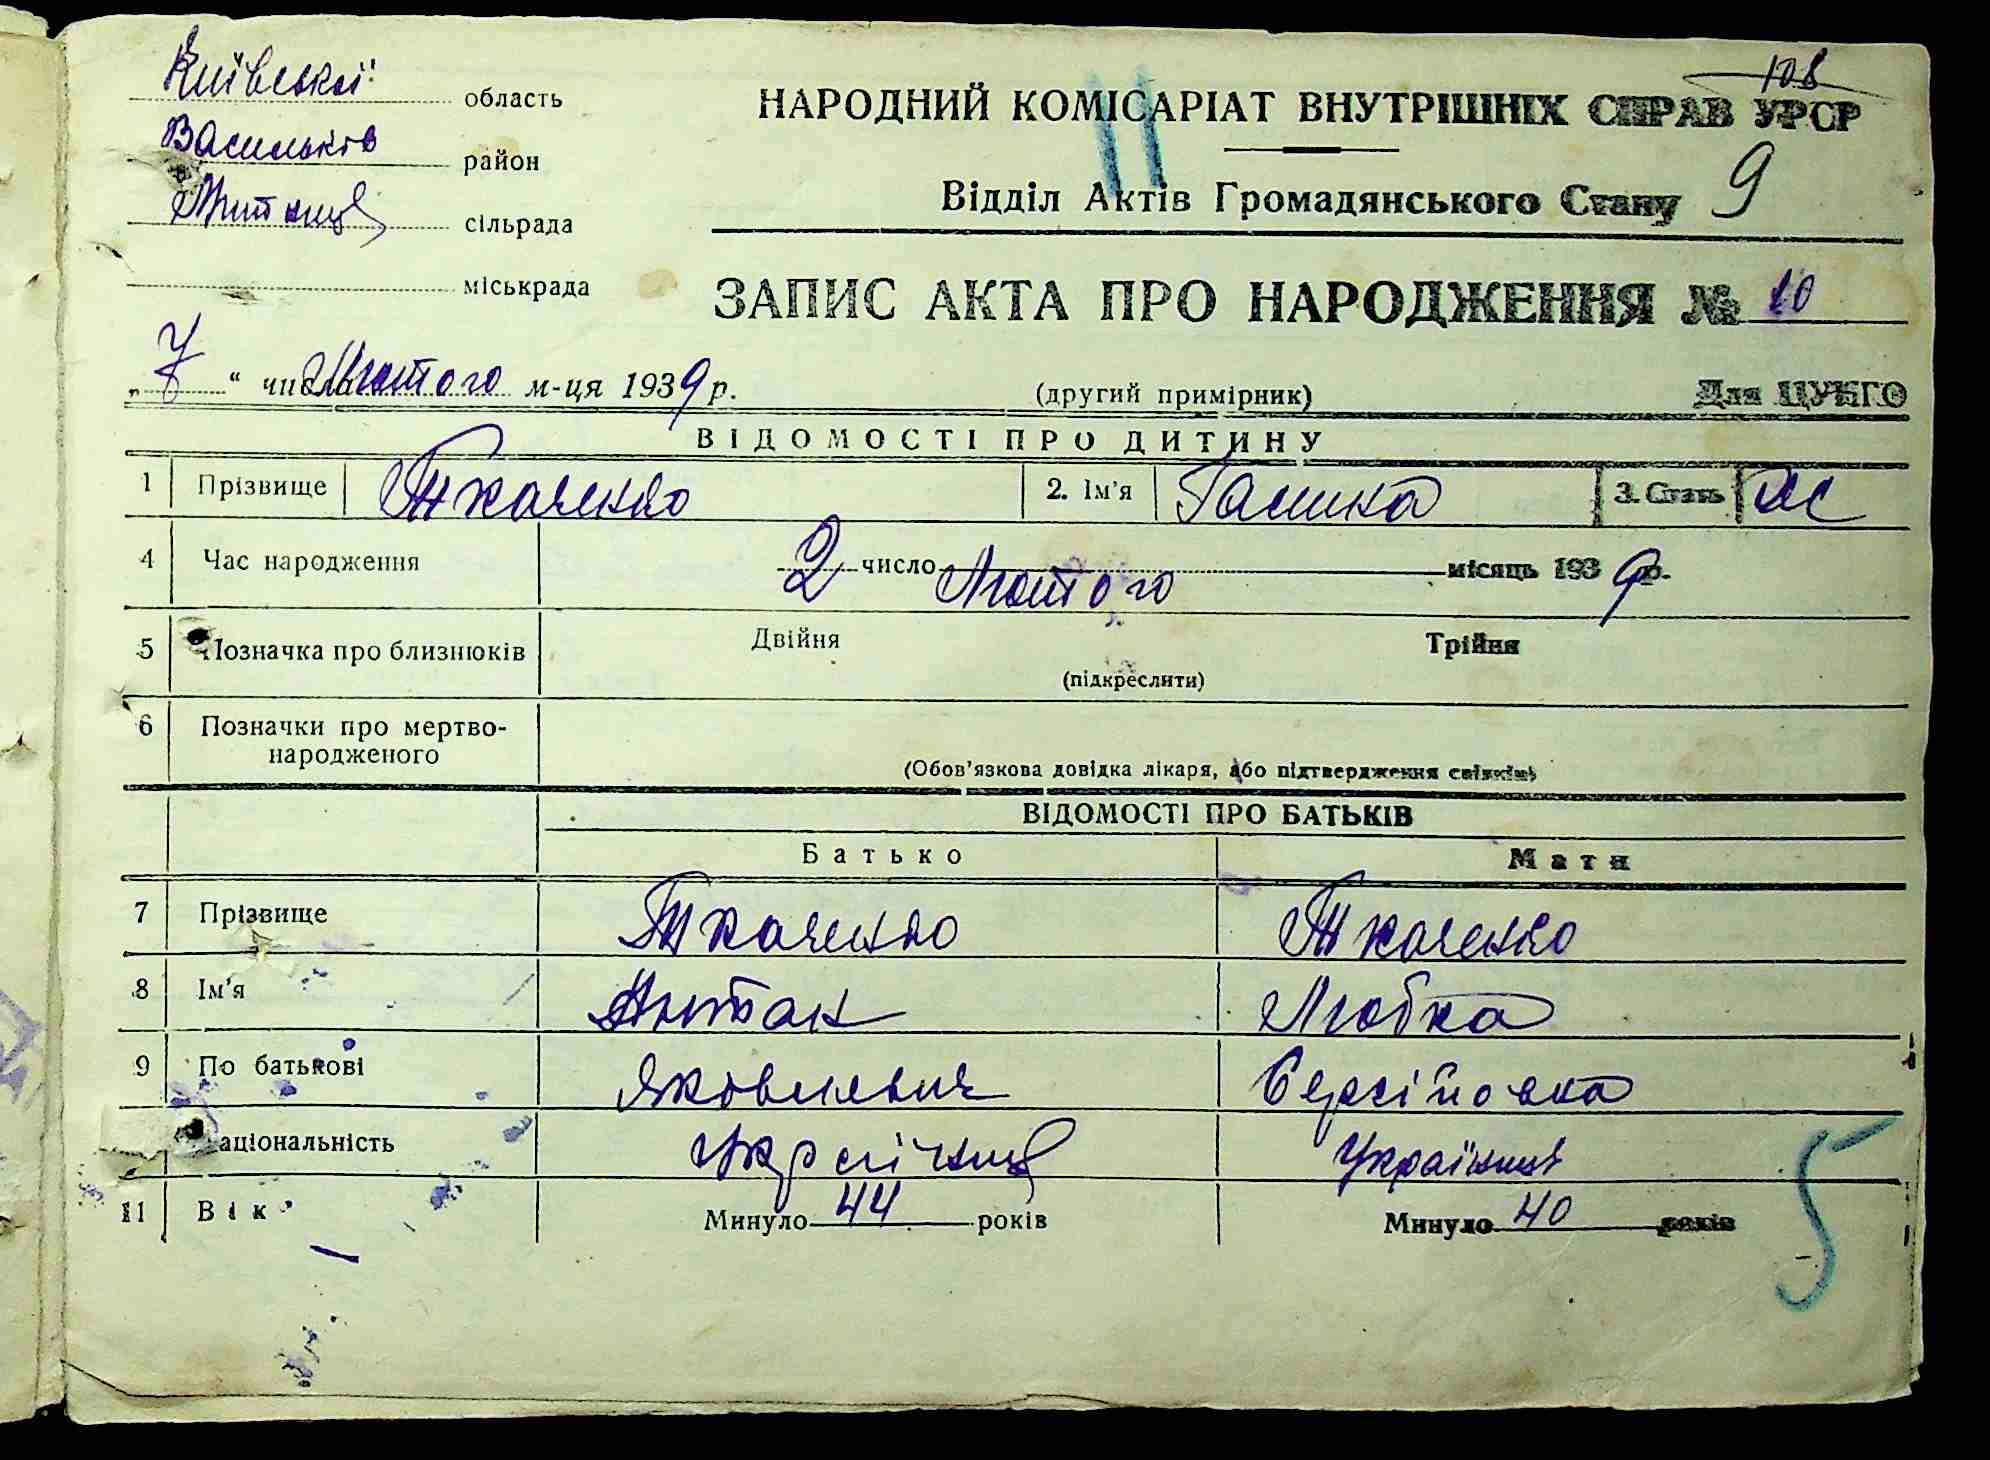 Київської область
Васильків район
Митниця сільрада
міськрада
108
НАРОДНИЙ КОМІСАРІАТ ВНУТРІШНІХ СПРАВ УРСР
Відділ Актів Громадянського Стану 9
ЗАПИС АКТА ПРО НАРОДЖЕННЯ № 10
„7“ числа Лютого м-ця 1939 р. (другий примірник) Для ЦУНГО
ВІДОМОСТІ ПРО ДИТИНУ
1 Прізвище Ткаченко 2. Ім'я Галика 3. Стать жс
4 Час народження 2 число Лютого місяць 1939 р.
5 Позначка про близнюків Двійня Трійня
(підкреслити)
6 Позначки про мертво-
народженого
(Обов'язкова довідка лікаря, або підтвердження свідків)
ВІДОМОСТІ ПРО БАТЬКІВ
Батько Мати
7 Прізвище Ткаченко Ткаченко
8 Ім'я Антон Любка
9 По батькові Яковлевич Сергіївна
аціональність Українець Українка
11 Вік Минуло 44 років Минуло 40 років
5